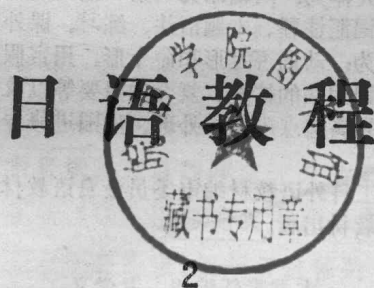 日语教程
学院图
馆
藏书专用章
2